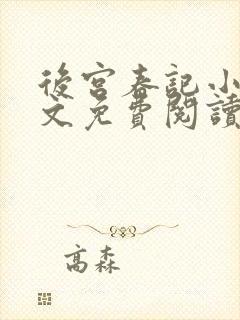 後宮春記小
文免費閱讀
高森